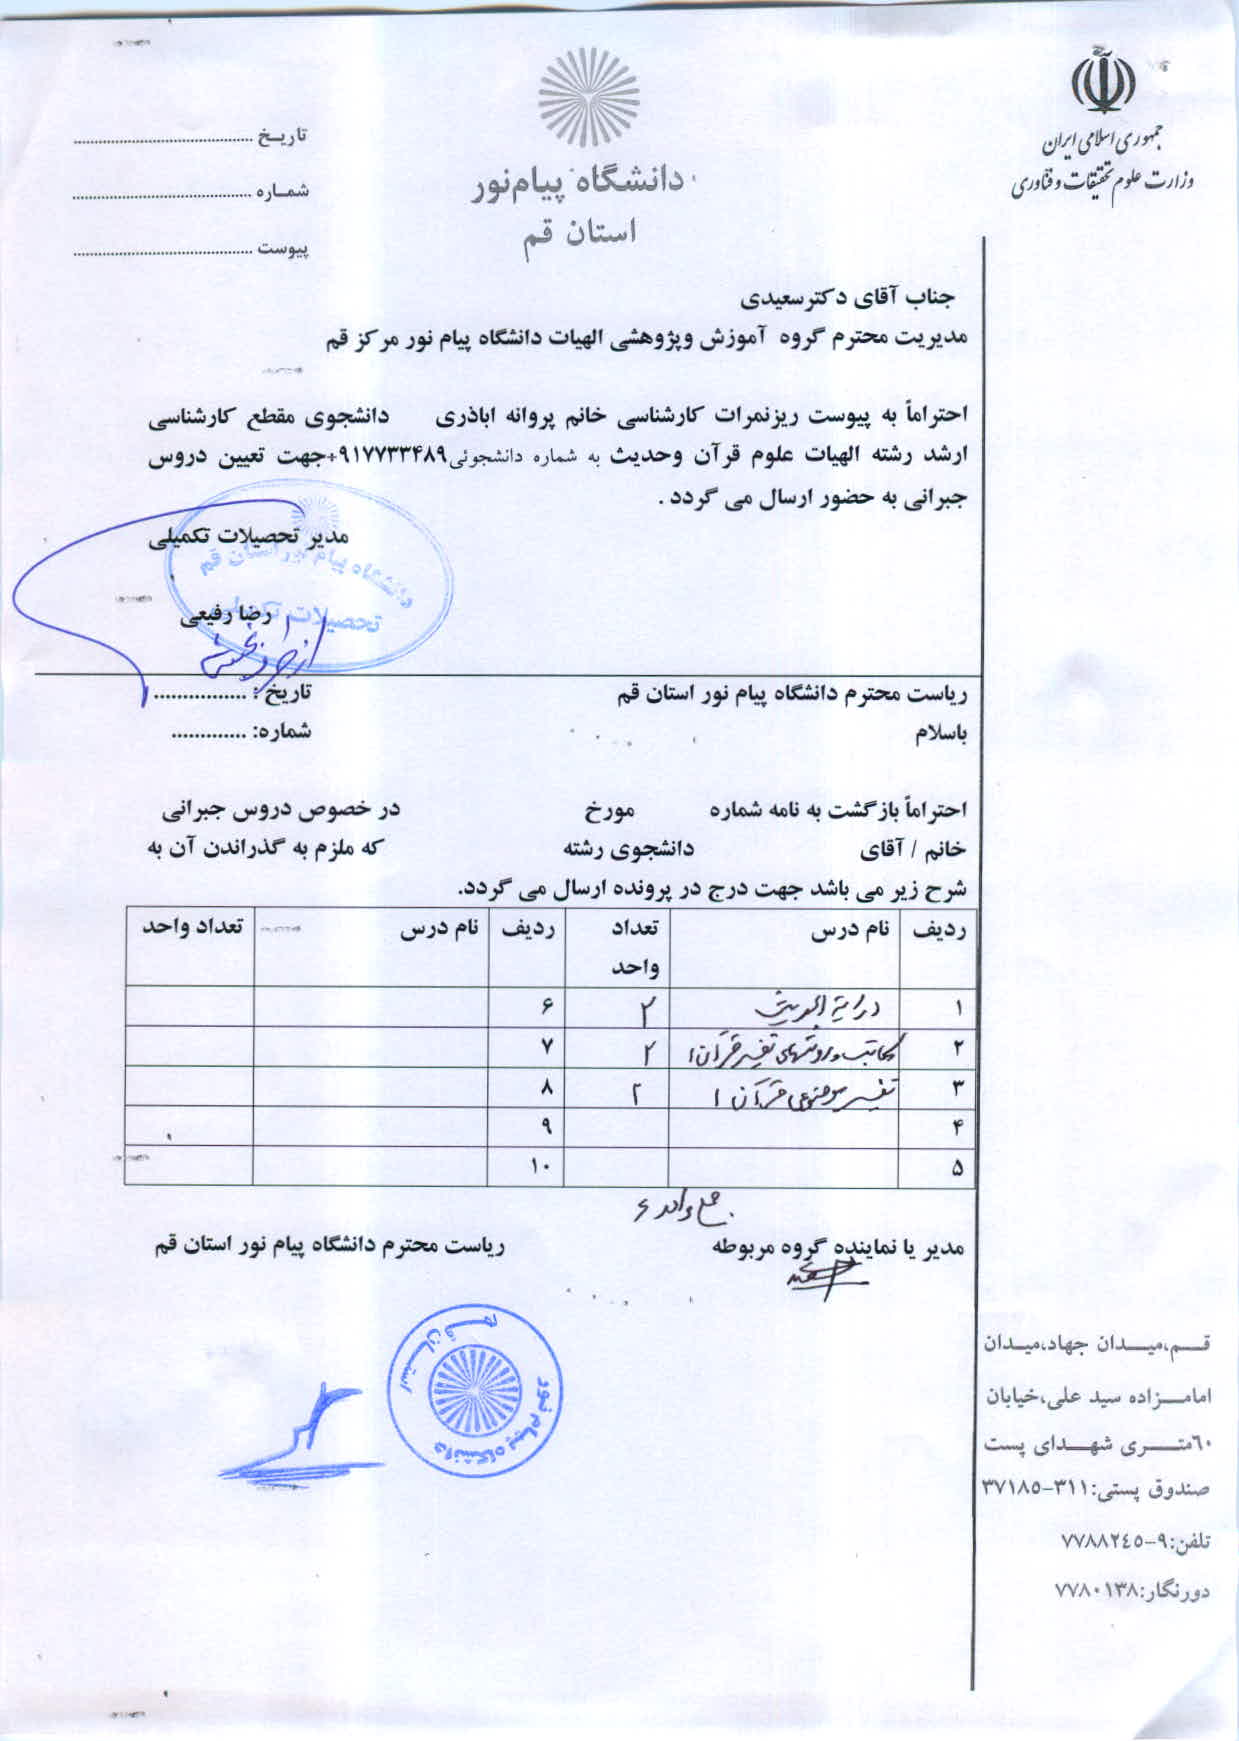 جمهوری اسلامی ایران
وزارت علوم تحقیقات و فناوری
دانشگاه پیام‌نور
استان قم
تاریخ
شماره
پیوست
جناب آقای دکترسعیدی
مدیریت محترم گروه آموزش وپژوهشی الهیات دانشگاه پیام نور مرکز قم
احتراماً به پیوست ریزنمرات کارشناسی خانم پروانه اباذری دانشجوی مقطع کارشناسی
ارشد رشته الهیات علوم قرآن وحدیث به شماره دانشجوئی ۹۱۷۷۳۳۴۸۹+جهت تعیین دروس
جبرانی به حضور ارسال می گردد .
مدیر تحصیلات تکمیلی
دانشگاه پیام نور استان قم
تحصیلات تکمیلی
رضا رفیعی
ریاست محترم دانشگاه پیام نور استان قم
تاریخ : ................
باسلام
شماره: .............
احتراماً بازگشت به نامه شماره مورخ در خصوص دروس جبرانی
خانم / آقای دانشجوی رشته که ملزم به گذراندن آن به
شرح زیر می باشد جهت درج در پرونده ارسال می گردد.
ردیف نام درس تعداد واحد ردیف نام درس تعداد واحد
۱ درایة الحدیث ۲ ۶
۲ مکاتب و روشهای تفسیر قرآن ۱ ۲ ۷
۳ تفسیر موضوعی قرآن ۱ ۲ ۸
۴ ۹
۵ ۱۰
جمع واحد ۶
مدیر یا نماینده گروه مربوطه
ریاست محترم دانشگاه پیام نور استان قم
دانشگاه پیام نور
استان قم
قم،میدان جهاد،میدان
امامزاده سید علی،خیابان
۶۰متری شهدای پست
صندوق پستی:۳۱۱-۳۷۱۸۵
تلفن:۹-۷۷۸۸۲٤٥
دورنگار:۷۷۸۰۱۳۸